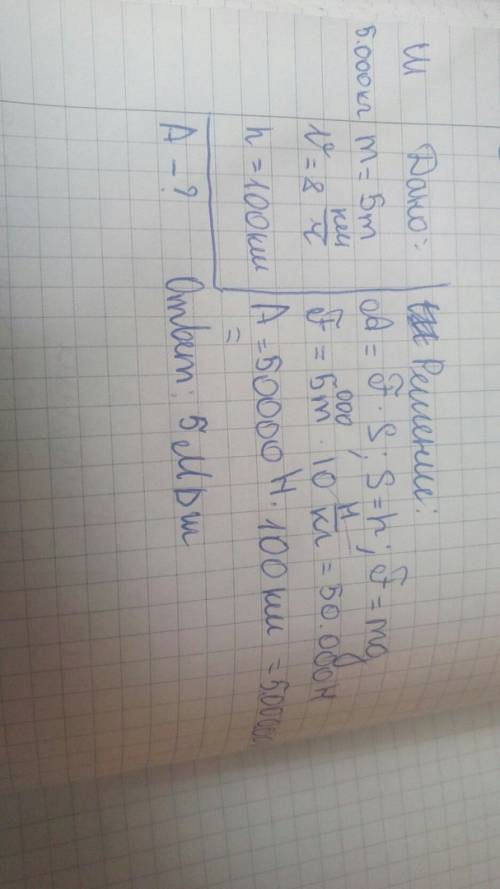 Ш Дано: Решение:
5.000кг m = 5т A = F · S; S = h; F = mg
V = 8 км/ч F = 5000т · 10 Н/кг = 50.000Н
h = 100км A = 50000 Н · 100 км = 500000
=
A – ? Ответ: 5 МДж